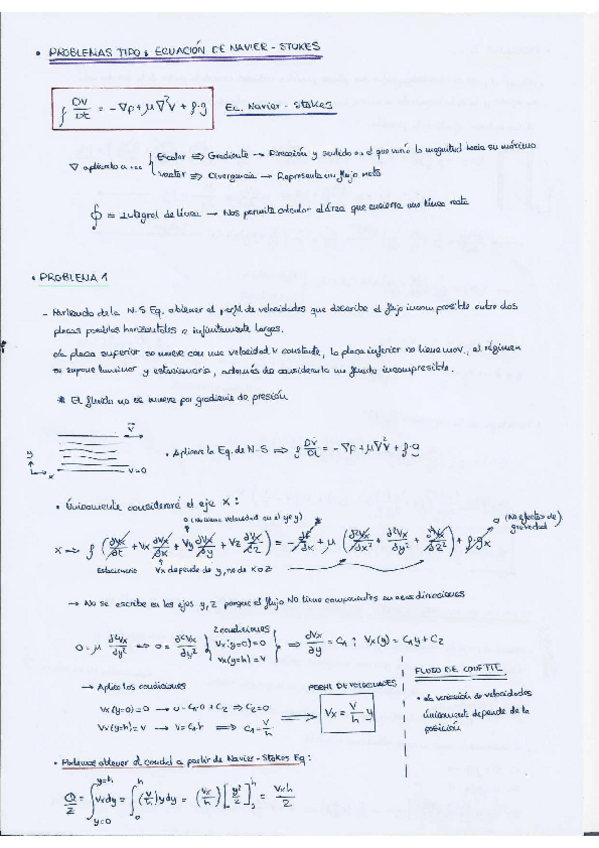 • PROBLEMAS TIPO: ECUACIÓN DE NAVIER-STOKES
ρ Dv/Dt = -∇p + μ∇²v + ρ·g Ec. Navier-Stokes
∇ aplicado a ... { Escalar ⇒ Gradiente → Dirección y sentido en el que varía la magnitud hacia su máximo
Vector ⇒ Divergencia → Representa un flujo neto
∮ = Integral de línea → Nos permite calcular el área que encierra una línea
• PROBLEMA 1
- Partiendo de la N-S Eq. obtener el perfil de velocidades que describe el flujo incompresible entre dos
placas paralelas horizontales e infinitamente largas.
La placa superior se mueve con una velocidad v constante, la placa inferior no tiene mov., el régimen
se supone laminar y estacionario, además de considerarlo un fluido incompresible.
* El fluido no se mueve por gradiente de presión
v
y
x
v=0
• Aplicar la Eq. de N-S ⇒ ρ Dv/Dt = -∇p + μ∇²v + ρ·g
• Únicamente consideraré el eje x:
0 (No tiene velocidad en el eje y)
0 (No efectos de gravedad)
x ⇒ ρ (∂Vx/∂t + Vx ∂Vx/∂x + Vy ∂Vx/∂y + Vz ∂Vx/∂z) = -∂P/∂x + μ (∂²Vx/∂x² + ∂²Vx/∂y² + ∂²Vx/∂z²) + ρ·gx
Estacionario Vx depende de y, no de x o z
→ No se escribe en los ejes y, z porque el flujo NO tiene componentes en esas direcciones
2 condiciones
0 = μ ∂²Vx/∂y² ⇒ 0 = ∂²Vx/∂y² { Vx(y=0)=0
Vx(y=h)=V } ⇒ ∂Vx/∂y = C1 ; Vx(y) = C1y + C2
→ Aplico las condiciones
Vx(y=0)=0 → 0 = C1·0 + C2 ⇒ C2=0
Vx(y=h)=V → V = C1·h ⇒ C1 = V/h
PERFIL DE VELOCIDADES
Vx = V/h y
FLUJO DE COUETTE
• La variación de velocidades
únicament depende de la
posición
• Podemos obtener el caudal a partir de Navier-Stokes Eq:
Q/Z = ∫ y=0 y=h Vx dy = ∫ 0 h (V/h) y dy = (Vx/h) [y²/2] h 0 = Vx h/2